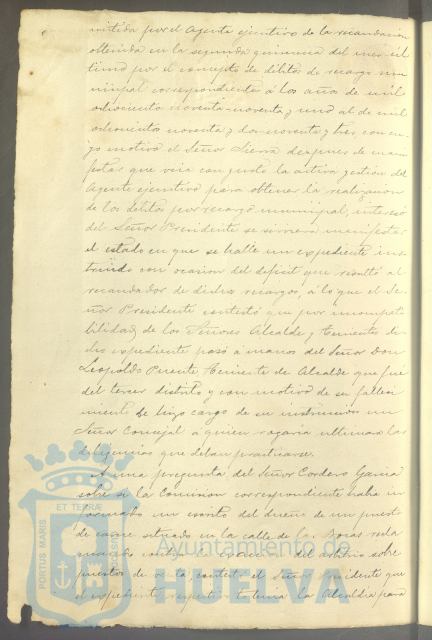 mitida por el Agente ejecutivo de la recaudacion
obtenida en la segunda quincena del mes úl
timo por el concepto de débitos de recargo mu
nicipal correspondiente á los años de mil
ochocientos noventa-noventa y uno al de mil
ochocientos noventa y dos-noventa y tres, con cu
yo motivo el Señor Sierra despues de mani
festar que veia con gusto la activa gestion del
Agente ejecutivo para obtener la realizacion
de los débitos por recargo municipal, interesó
del Señor Presidente se sirviera manifestar
el estado en que se halle un expediente ins
truido con ocasion del deficit que resultó al
recaudador de dichos recargos, á lo que el Se
ñor Presidente contestó que por incompati
bilidad de los Señores Alcalde y Tenientes di
cho expediente pasó a manos del Señor Don
Leopoldo Puente, Teniente de Alcalde que fué
del tercer distrito y con motivo de su falleci
miento se hizo cargo de su instruccion un
Señor Concejal a quien rogaria ultimara las
diligencias que debian practicarse.
A una pregunta del Señor Cordero Garcia
sobre si la Comision correspondiente habia in
formado un escrito del dueño de un puesto
de carne situado en la calle de la
contra la del arbitrio sobre
puestos de contestó el Señor Presidente que
el expediente la Alcaldia para
PORTUS MARIS ET TERRÆ CUSTODIA
Ayuntamiento de
HUELVA